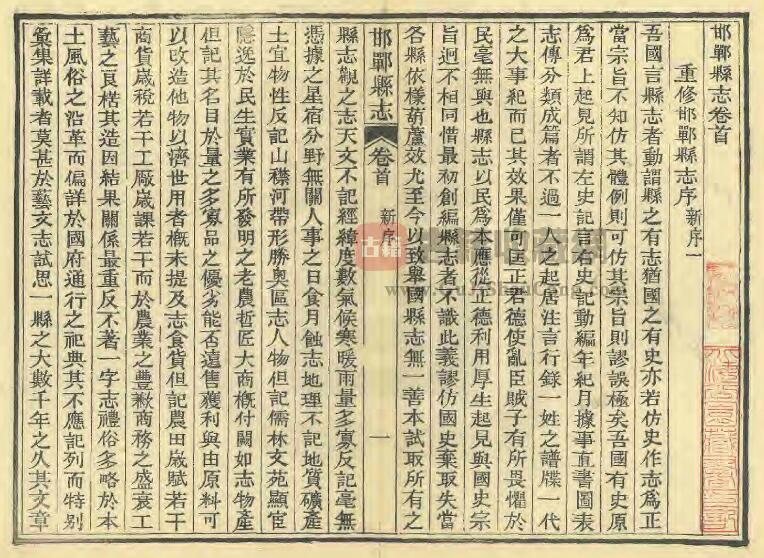 邯鄲縣志卷首
重修邯鄲縣志序 新序一
吾國言縣志者動謂縣之有志猶國之有史亦若仿史作志爲正
當宗旨不知仿其體例則可仿其宗旨則謬誤極矣吾國有史原
爲君上起見所謂左史記言右史記動編年紀月據事直書圖表
志傳分類成篇者不過一人之起居注言行錄一姓之譜牒一代
之大事紀而已其效果僅以匡正若德使亂臣賊子有所畏懼於
民毫無與也縣志以民爲本應從正德利用厚生起見與國史宗
旨迥不相同惜最初創編縣志者不識此義謬仿國史棄取失當
各縣依樣葫蘆效尤至今以致舉國縣志無一善本試取所有之
邯鄲縣志 卷首 新序 一
縣志觀之志天文不記經緯度數氣候寒暖雨量多寡反記毫無
憑據之星宿分野無關人事之日食月蝕志地理不記地質礦產
土宜物性反記山襟河帶形勝奧區志人物但記儒林文苑顯宦
隱逸於民生實業有所發明之老農哲匠大商概付闕如志物產
但記其名目於量之多寡品之優劣能否遠售獲利與由原料可
以改造他物以濟世用者概未提及志食貨但記農田歲賦若干
商貨歲稅若干工廠歲課若干而於農業之豐歉商務之盛衰工
藝之良楛其造因結果關係最重反不著一字志禮俗多略於本
土風俗之沿革而偏詳於國府通行之祀典其不應記列而特別
彙集詳載者莫甚於藝文志試思一縣之大數千年之久其文章
古籍